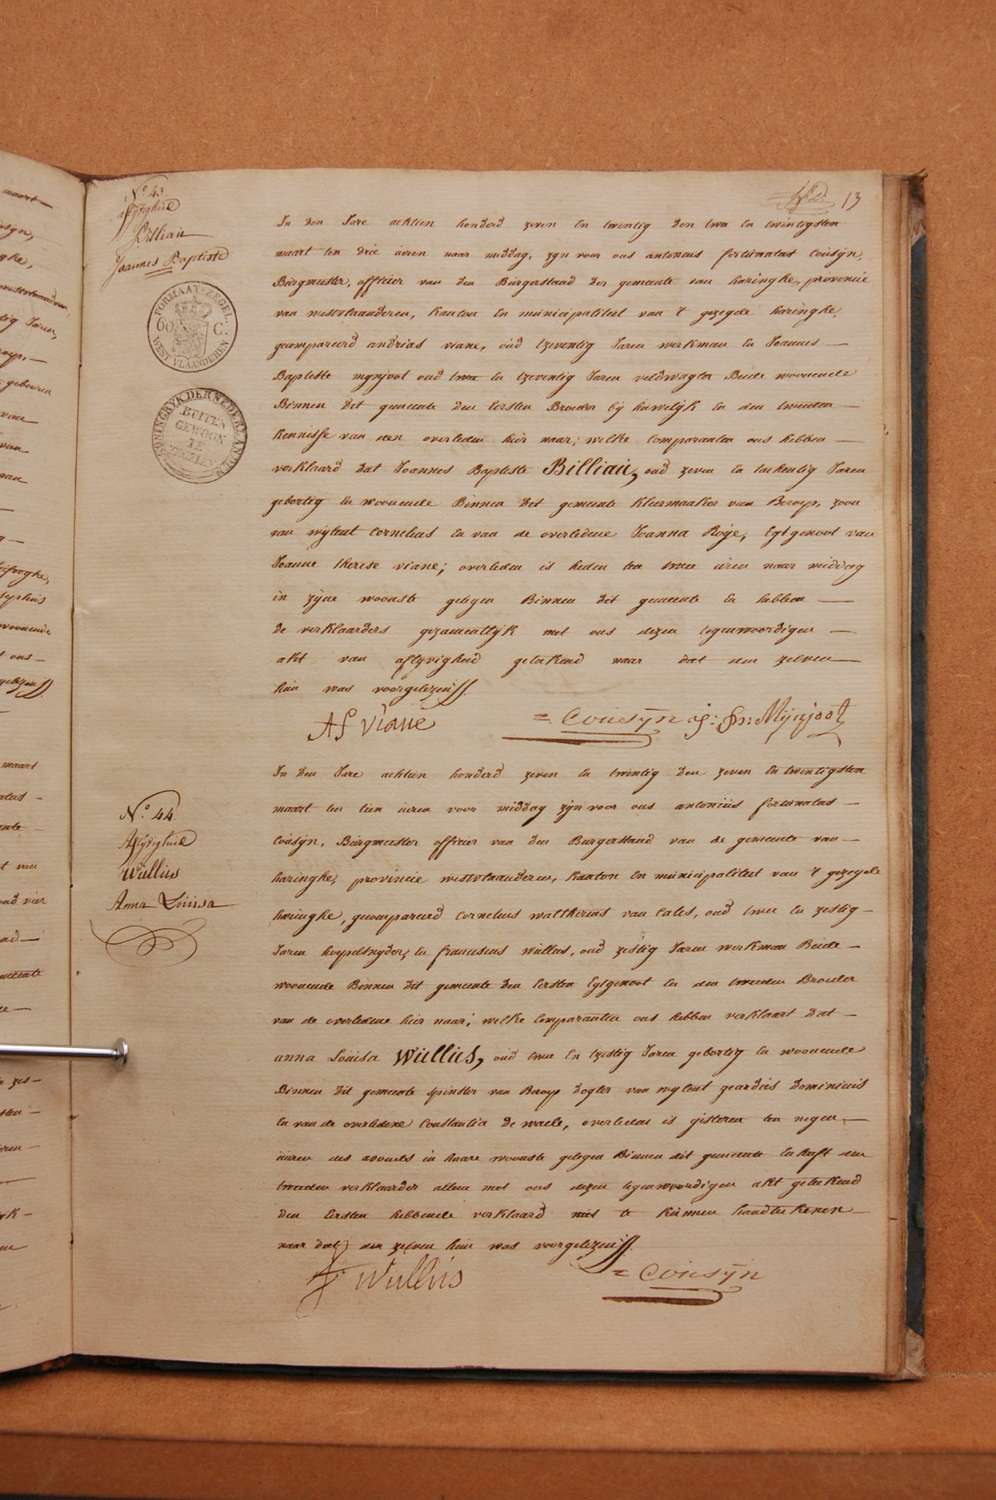 N.º 43
Aflyvigheid
Billiau
Joannes Baptiste
FORMAAT-ZEGEL
60 C.
WEST VLAANDEREN
KONINGRYK DER NEDERLANDEN
BUITEN
GEWOON
TE
ZEGELEN
13
In den Jare achtien honderd zeven en twentig den twee en twintigsten
maart ten drie uren naer middag, zyn voor ons antonius fortunatus Cousÿn,
Burgmeester, officier van den Burgerstand der gemeente van haringhe, provincie
van westvlaanderen, kanton en municipaliteit van 't gezegde haringhe,
gecompareerd andries viane, oud tzeventig Jaren werkman en Joannes
Baptiste mynjoot oud twee en tzeventig Jaren veldwagter Beide woonende
Binnen dit gemeente den Eersten Broeder bij huwelijk en den tweeden
kennisse van den overleden hier naer; welke comparanten ons hebben
verklaard dat Joannes Baptiste Billiau, oud zeven en tachentig Jaren
gebortig en woonende Binnen dit gemeente kleermaaker van Beroep, zoon
van wylent Cornelius en van de overledene Joanna Roÿe, Egtgenoot van
Joanne therese viane; overleden is heden ten twee uren naer middag
in zyne wooninge gelegen Binnen dit gemeente en hebben
de verklaarders gezamentlijk met ons dezen tegenwoordigen
akt van aflyvigheid geteekend naer dat den zelven
hun was voorgelezen
AF Viane
= Cousÿn
Mijnjoot
N.º 44
Aflyvigheid
Wullius
Anna Louisa
In den Jare achtien honderd zeven en twintig den zeven en twintigsten
maart ten tien uren voor middag zÿn voor ons antonius fortunatus
Cousÿn, Burgmeester officier van den Burgerstand van de gemeente van
haringhe, provincie westvlaanderen, kanton en municipaliteit van 't gezegde
haringhe, gecompareerd Cornelius waltherius van Cales, oud twee en zestig
Jaren hoppelsnyder, en franciscus Wullus, oud zestig Jaren werkman Beide
woonende Binnen dit gemeente den Eersten Egtgenoot en den tweeden Broeder
van de overledene hier naar; welke comparanten ons hebben verklaart dat
anna Louisa Wullus, oud twee en tzestig Jaren gebortig en woonende
Binnen dit gemeente spinster van Beroep dogter van wylent geardus Dominicus
en van de overledene Constantia De waele, overleden is gisteren ten negen
uuren des avonds in haare wooninge gelegen Binnen dit gemeente en heeft den
tweeden verklaarder alleen met ons dezen tegenwoordigen akt geteekend
den Eersten hebbende verklaard niet te kunnen handteekenen
naer dat den zelven hun was voorgelezen
F. Wullus
= Cousÿn